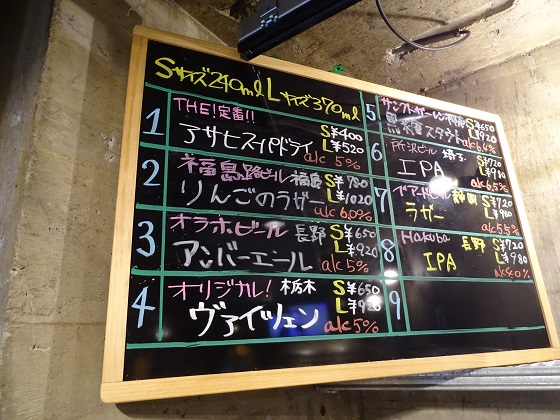 Sサイズ240ml Lサイズ370ml
1
THE!定番!!
アサヒスーパードライ
S¥400
L¥520
alc 5%
2
福島路ビール 福島
りんごのラガー
S¥780
L¥1020
alc 6.0%
3
オラホビール 長野
アンバーエール
S¥650
L¥920
alc 5%
4
オリジナル! 栃木
ヴァイツェン
S¥650
L¥920
alc 5%
5
サンクトガーレン
スタウト
S¥650
L¥920
alc 6.4%
6
所沢ビール 埼玉
IPA
S¥720
L¥980
alc 6.5%
7
ベアードビール 静岡
ラガー
S¥720
L¥980
alc 5.5%
8
Hakuba 長野
IPA
S¥720
L¥980
alc 4.0%
9